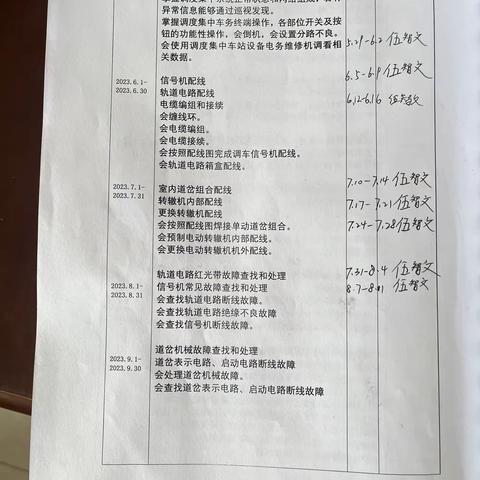 异常信息能够通过巡视发现。
掌握调度集中车务终端操作，各部位开关及按
钮的功能性操作，会倒机，会设置分路不良。
会使用调度集中车站设备电务维修机调看相
关数据。
5.29-6.2 伍智文
2023.6.1-
2023.6.30
信号机配线
轨道电路配线
电缆编组和接续
会缠线环。
会电缆编组。
会电缆接续。
会按照配线图完成调车信号机配线。
会轨道电路箱盒配线。
6.5-6.9 伍智文
6.12-6.16 伍智文
2023.7.1-
7.31
室内道岔组合配线
转辙机内部配线
更换转辙机配线
会按照配线图焊接单动道岔组合。
会预制电动转辙机内部配线。
会更换电动转辙机机外配线。
7.10-7.14 伍智文
7.17-7.21 伍智文
7.24-7.28 伍智文
2023.8.1-
2023.8.31
轨道电路红光带故障查找和处理
信号机常见故障查找和处理
会查找轨道电路断线故障。
会查找轨道电路绝缘不良故障
会查找信号机断线故障。
7.31-8.4 伍智文
8.7-8.11 伍智文
2023.9.1-
2023.9.30
道岔机械故障查找和处理
道岔表示电路、启动电路断线故障
会处理道岔机械故障。
会查找道岔表示电路、启动电路断线故障